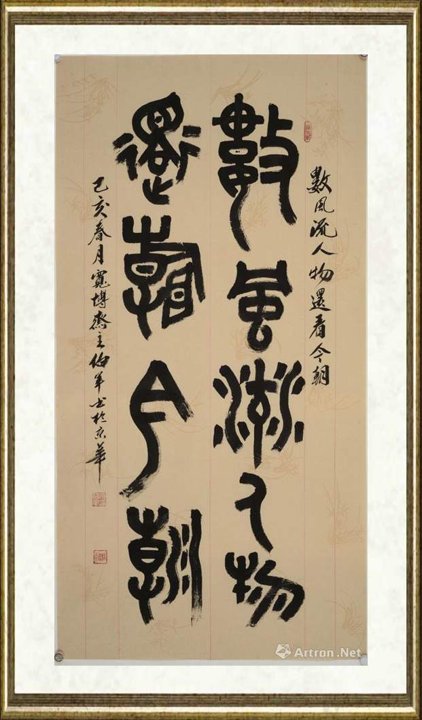 數風流人物還看今朝
數風流人物
還看今朝
己亥春月寬博齋主伯年書於京華
Artron.Net